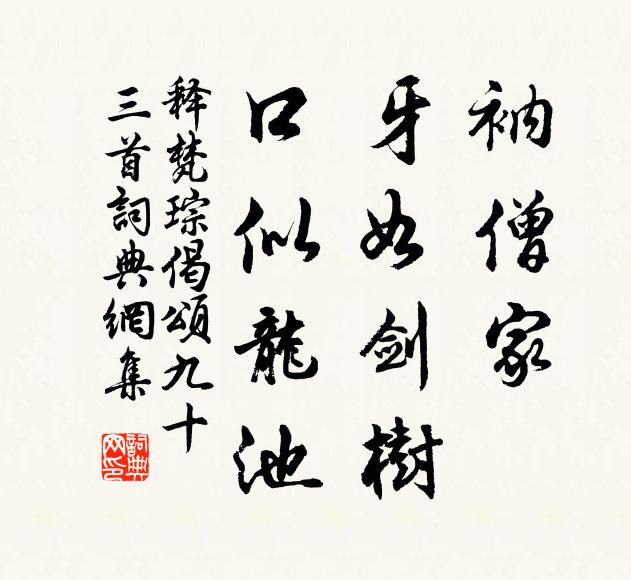 衲僧家
牙如剑樹
口似龍池
释梵琮偈頌九十
三首詞典網集
詞典网印